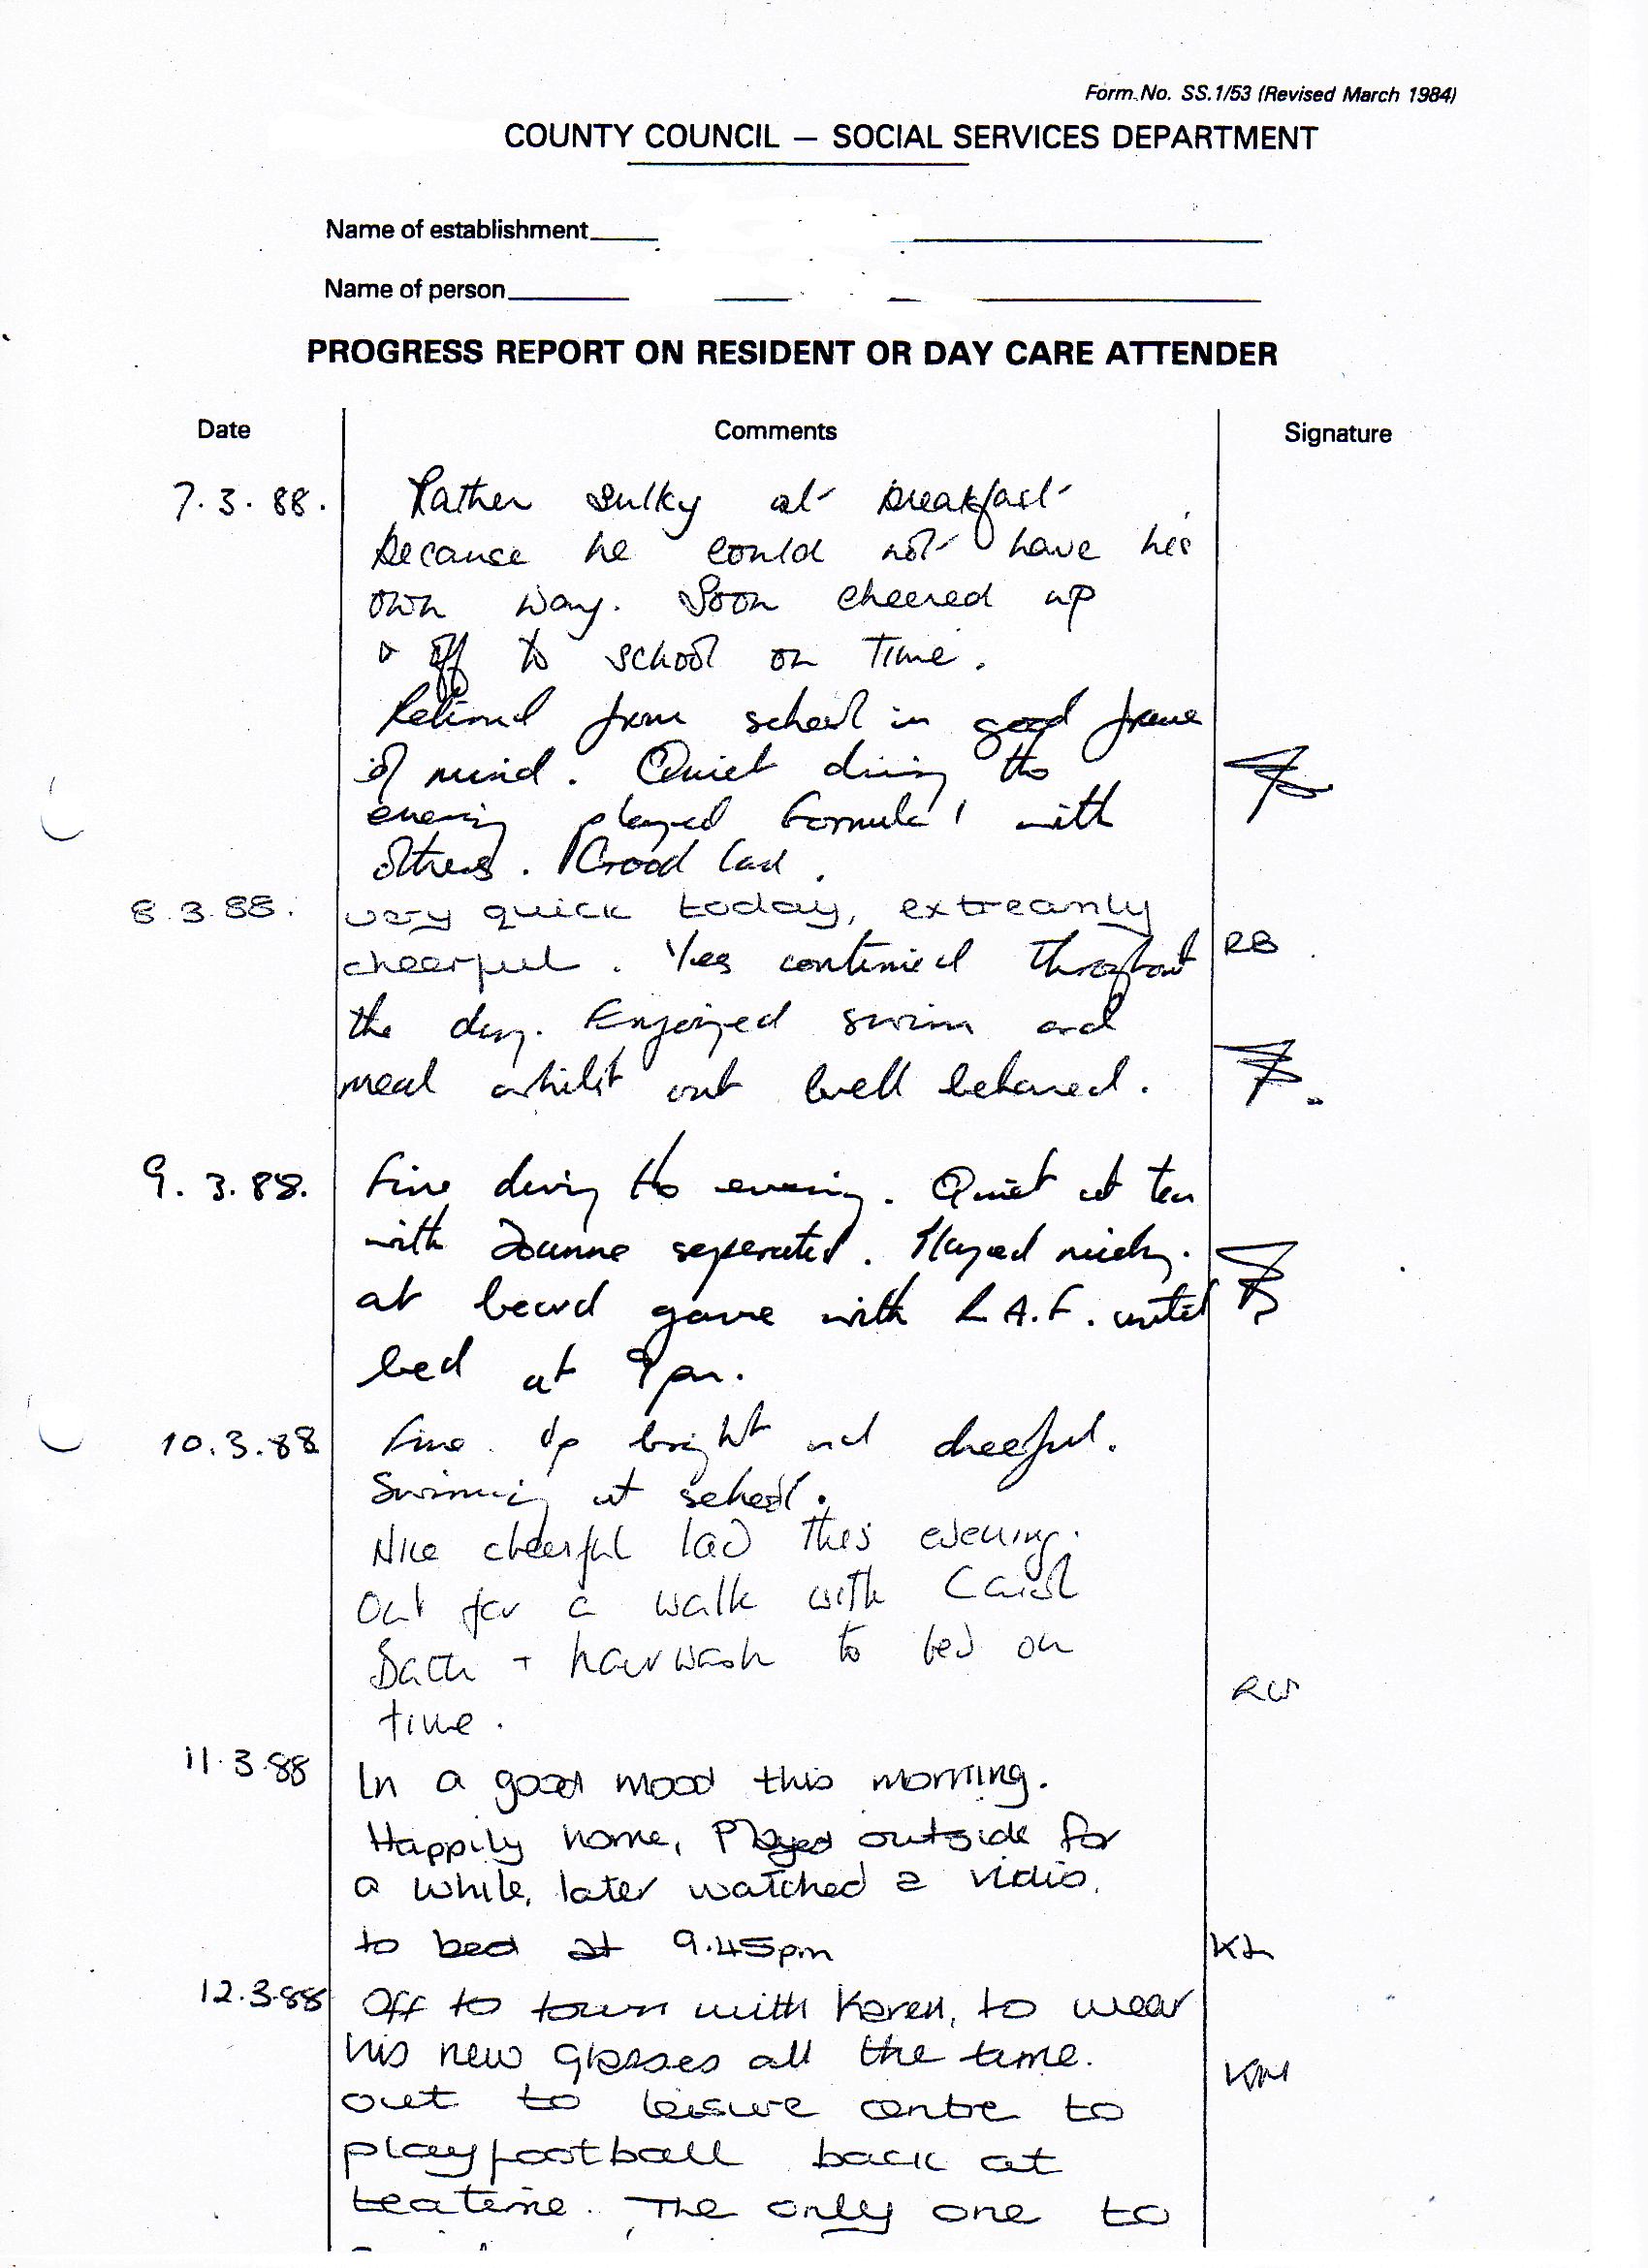 Form No. SS.1/53 (Revised March 1984)
COUNTY COUNCIL — SOCIAL SERVICES DEPARTMENT
Name of establishment
Name of person
PROGRESS REPORT ON RESIDENT OR DAY CARE ATTENDER
Date Comments Signature
7.3.88. Rather sulky at breakfast
because he could not have his
own way. Soon cheered up
& off to school on time.
Returned from school in good frame
of mind. Quiet during the
evening played Formula 1 with
others. Good lad.
8.3.88. very quick today, extreamly
cheerful. Yes continued throughout RB
the day. Enjoyed swim and
meal whilst out well behaved.
9.3.88. Fine during the evening. Quiet at tea
with Joanne seperated. Played nicely.
at board game with L.A.F. until
bed at 9pm.
10.3.88 Fine. Up bright and cheeful.
Swimming at school.
Nice cheerful lad this evening.
Out for a walk with Carol
Bath + hairwash to bed on
time. RW
11.3.88 In a good mood this morning.
Happily home, Played outside for
a while, later watched a vidio.
to bed at 9.45pm KL
12.3.88 Off to town with Karen, to wear
his new glasses all the time.
out to leisure centre to KM
play football back at
teatime. The only one to